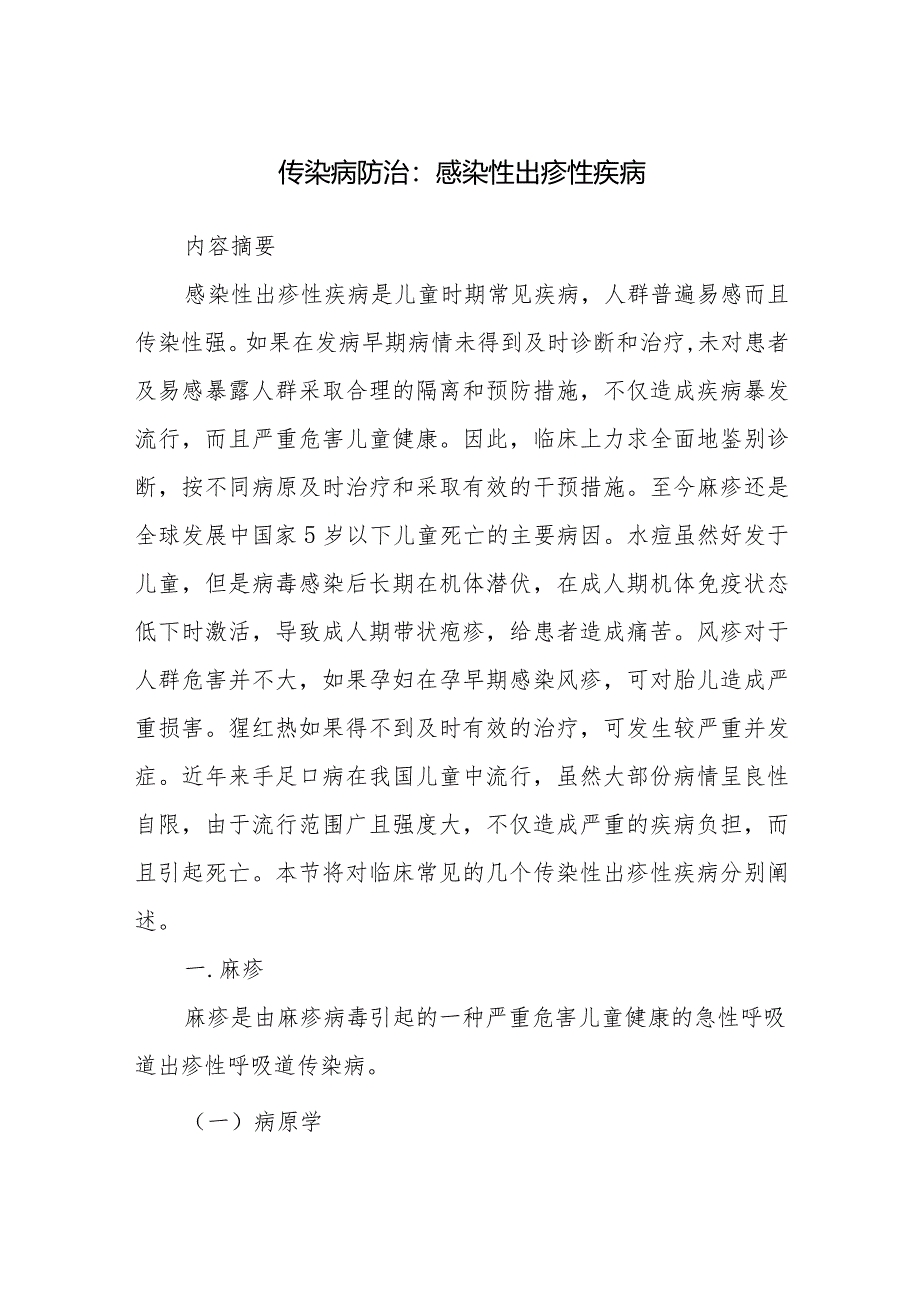 传染病防治：感染性出疹性疾病
内容摘要
感染性出疹性疾病是儿童时期常见疾病，人群普遍易感而且
传染性强。如果在发病早期病情未得到及时诊断和治疗,未对患者
及易感暴露人群采取合理的隔离和预防措施，不仅造成疾病暴发
流行，而且严重危害儿童健康。因此，临床上力求全面地鉴别诊
断，按不同病原及时治疗和采取有效的干预措施。至今麻疹还是
全球发展中国家5岁以下儿童死亡的主要病因。水痘虽然好发于
儿童，但是病毒感染后长期在机体潜伏，在成人期机体免疫状态
低下时激活，导致成人期带状疱疹，给患者造成痛苦。风疹对于
人群危害并不大，如果孕妇在孕早期感染风疹，可对胎儿造成严
重损害。猩红热如果得不到及时有效的治疗，可发生较严重并发
症。近年来手足口病在我国儿童中流行，虽然大部份病情呈良性
自限，由于流行范围广且强度大，不仅造成严重的疾病负担，而
且引起死亡。本节将对临床常见的几个传染性出疹性疾病分别阐
述。
一.麻疹
麻疹是由麻疹病毒引起的一种严重危害儿童健康的急性呼吸
道出疹性呼吸道传染病。
（一）病原学